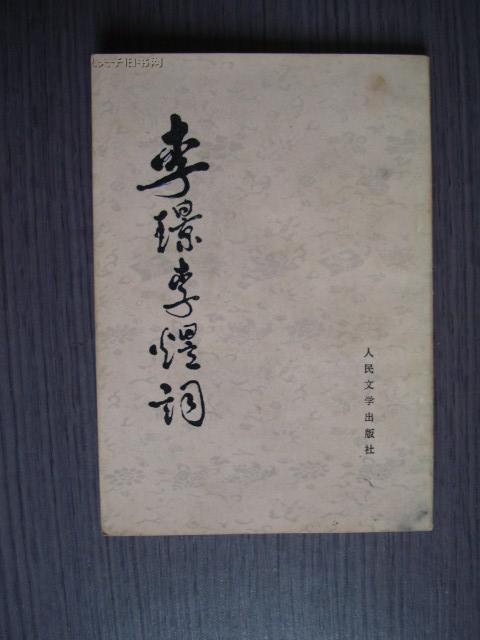 李璟李煜词
人民文学出版社
夫子旧书网